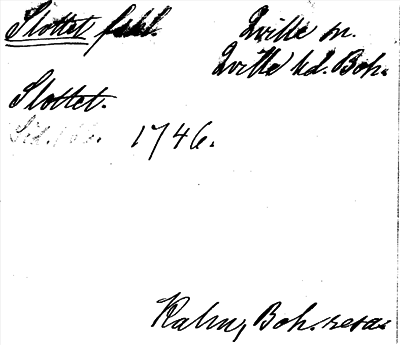 Slottet Qville sn.
Qville hd. Boh.
Slottet.
Sid. 1746.
Kalm, Boh. resa